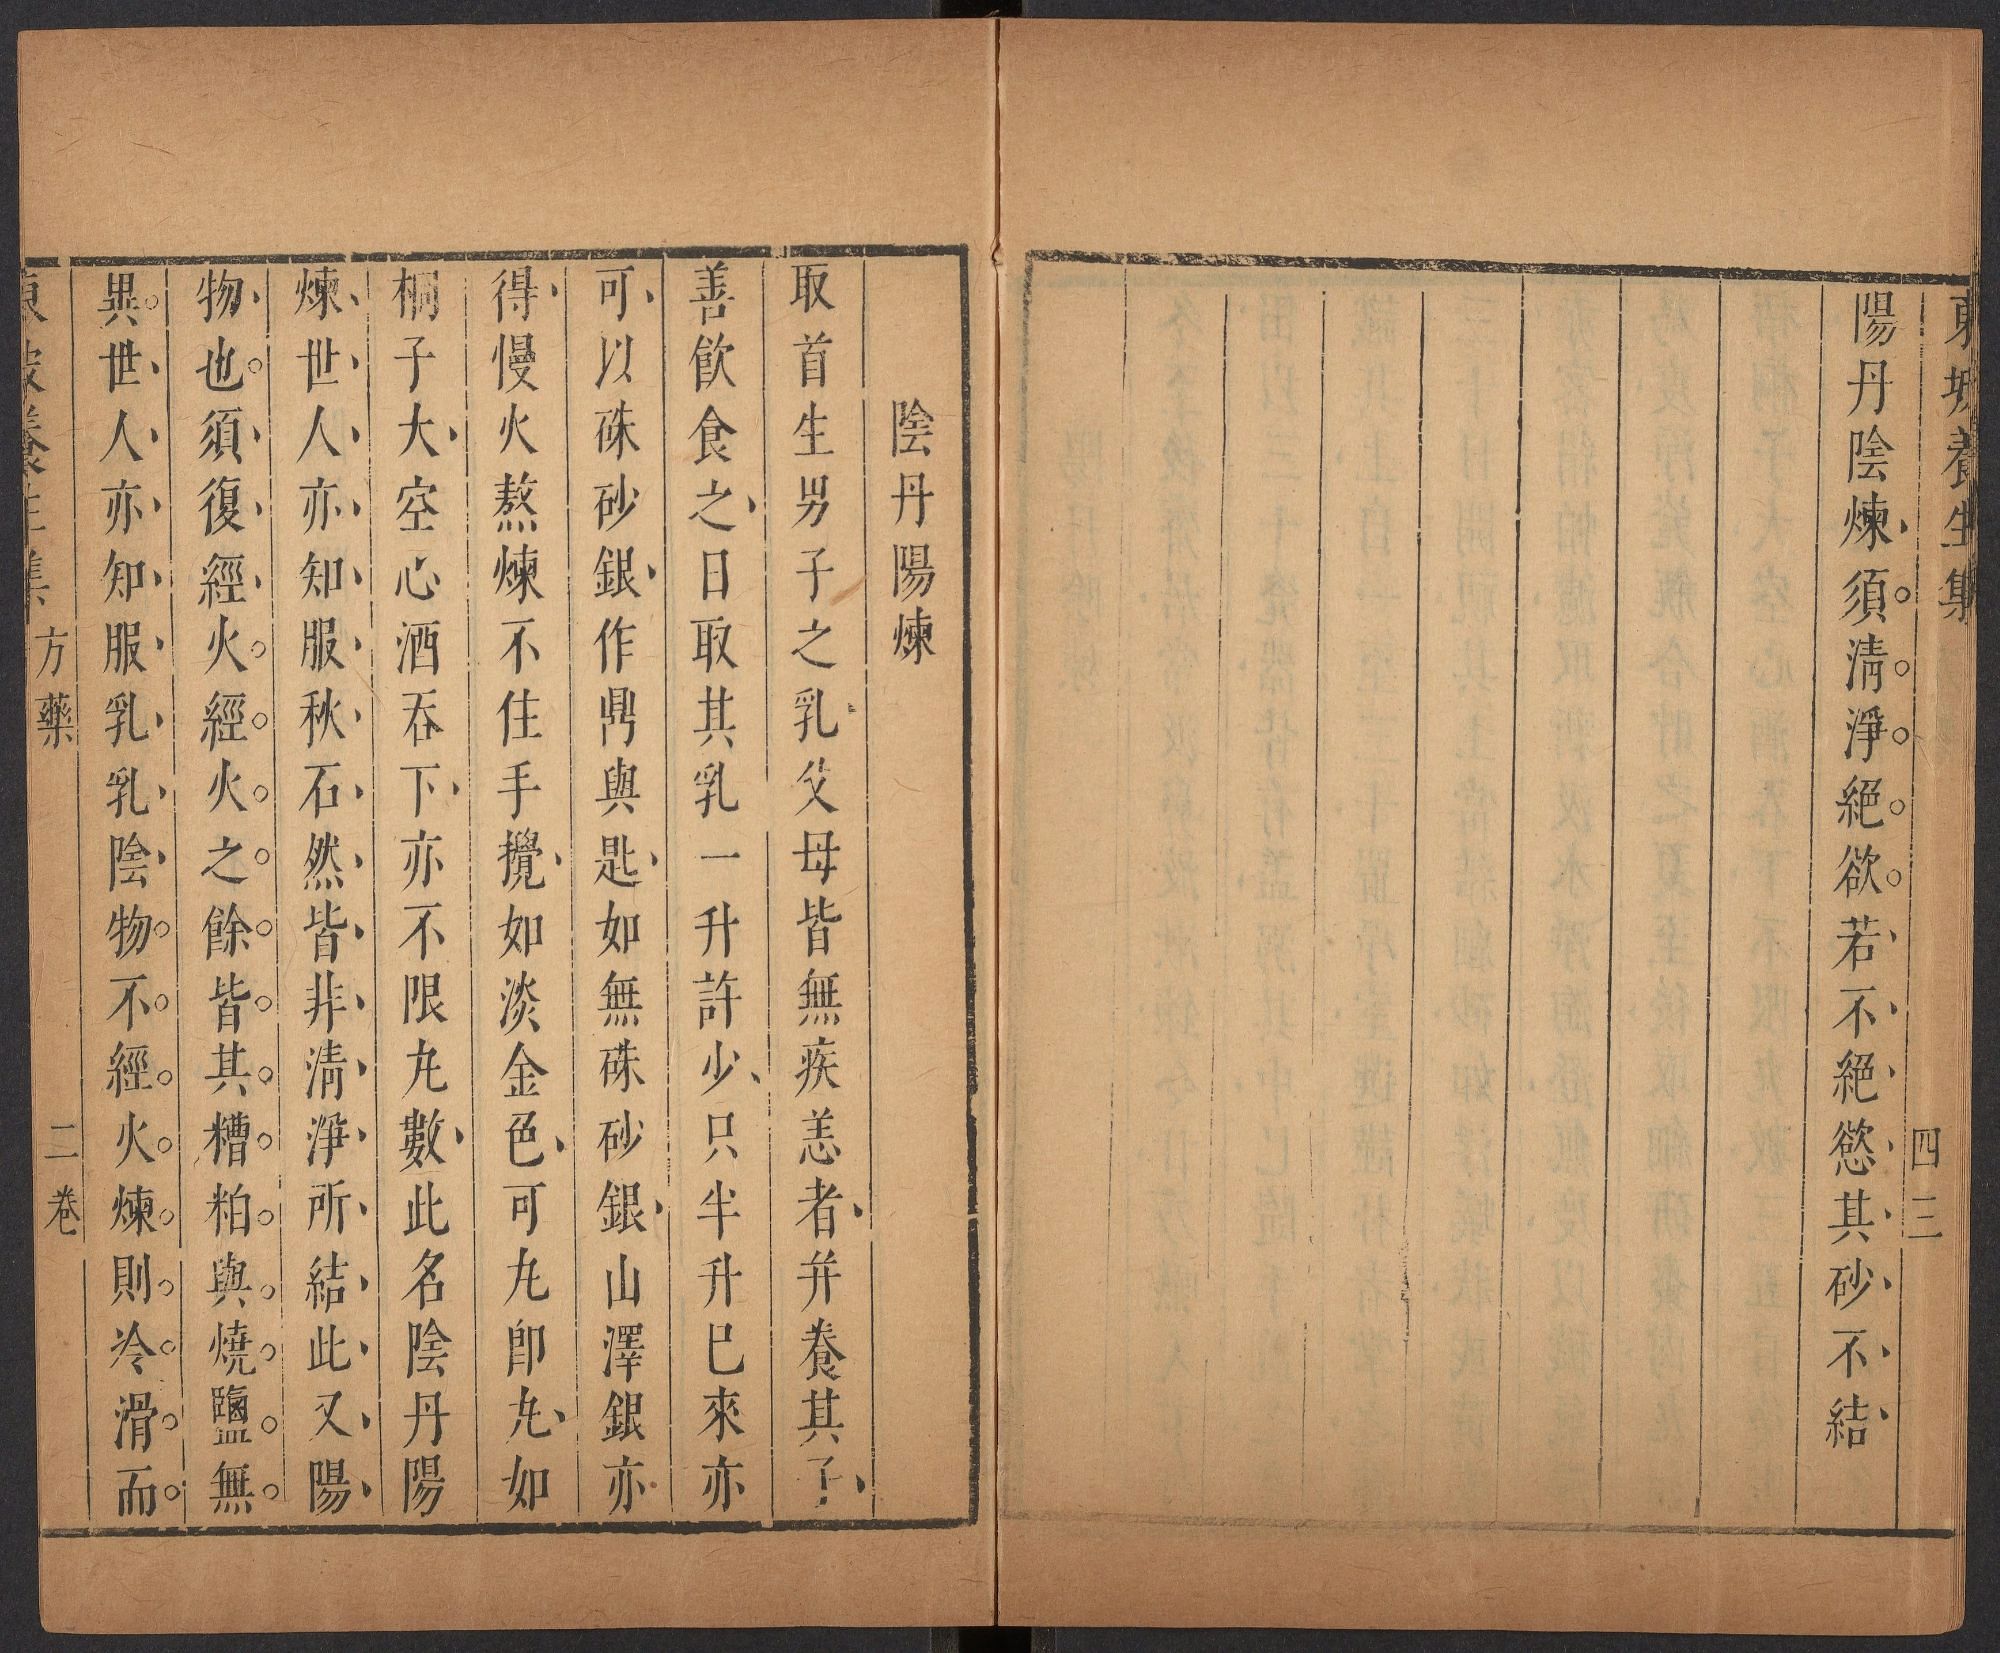 東坡養生集
四三
陽丹陰煉須淸淨絕欲若不絕慾其砂不結
陰丹陽煉
取首生男子之乳父母皆無疾恙者幷養其子
善飮食之日取其乳一升許少只半升已來亦
可以硃砂銀作鼎與匙如無硃砂銀山澤銀亦
得慢火熬煉不住手攪如淡金色可丸卽丸如
桐子大空心酒吞下亦不限丸數此名陰丹陽
煉世人亦知服秋石然皆非淸淨所結此又陽
物也須復經火經火之餘皆其糟粕與燒鹽無
異世人亦知服乳乳陰物不經火煉則冷滑而
東坡養生集
方藥
二卷